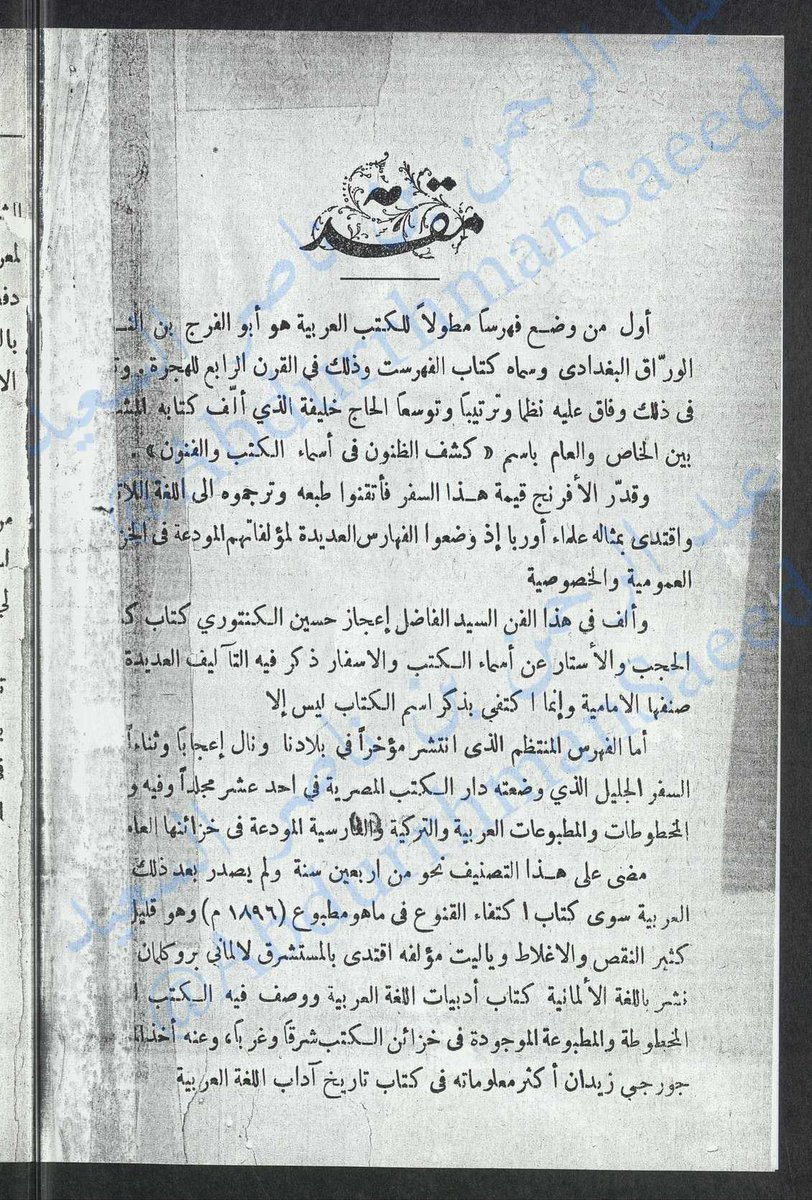 مقدمة
أول من وضع فهرساً مطولاً للكتب العربية هو أبو الفرج بن
الورّاق البغدادى وسماه كتاب الفهرست وذلك فى القرن الرابع للهجرة.
فى ذلك وفاق عليه نظما وترتيباً وتوسعاً الحاج خليفة الذي ألّف كتابه
بين الخاص والعام باسم « كشف الظنون فى أسماء الكتب والفنون » .
وقدّر الأفرنج قيمة هذا السفر فأتقنوا طبعه وترجموه الى اللغة
واقتدى بمثاله علماء أوربا إذ وضعوا الفهارس العديدة لمؤلفاتهم المودعة فى
العمومية والخصوصية
وألف في هذا الفن السيد الفاضل إعجاز حسين الكنتوري كتاب
الحجب والأستار عن أسماء الكتب والاسفار ذكر فيه التآليف العديدة
صنفها الامامية وإنما اكتفي بذكر اسم الكتاب ليس إلا
أما الفهرس المنتظم الذى انتشر مؤخراً في بلادنا ونال إعجاباً وثناءاً
السفر الجليل الذي وضعته دار الكتب المصرية في احد عشر مجلداً وفيه
المخطوطات والمطبوعات العربية والتركية والفارسية المودعة فى خزائنها
مضى على هذا التصنيف نحو من اربعين سنة ولم يصدر بعد ذلك
العربية سوى كتاب اكتفاء القنوع فى ماهو مطبوع (١٨٩٦ م) وهو
كثير النقص والاغلاط وياليت مؤلفه اقتدى بالمستشرق لالمانى بروكلمان
نشر باللغة الألمانية كتاب أدبيات اللغة العربية ووصف فيه الكتب
المخطوطة والمطبوعة الموجودة فى خزائن الكتب شرقاً وغرباً، وعنه أخذ
جورجي زيدان أكثر معلوماته فى كتاب تاريخ آداب اللغة العربية
عبد الرحمن بن ناصر السعيد
@AbdurrhmanSaeed
عبد الرحمن بن ناصر السعيد
@AbdurrhmanSaeed